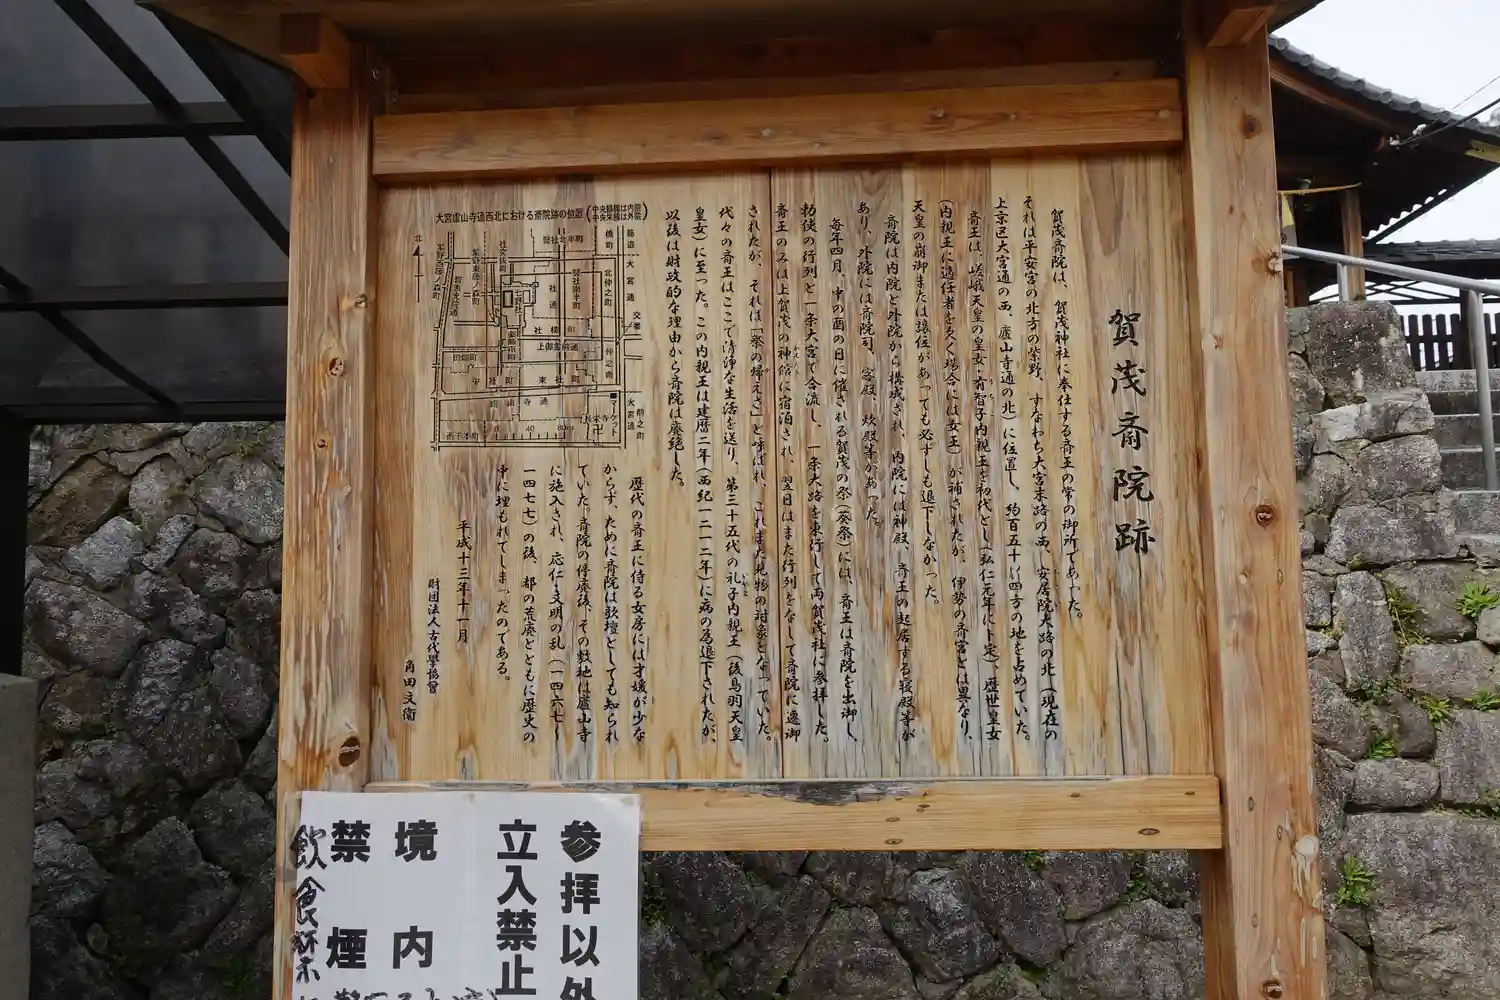 賀茂斎院跡
賀茂斎院は、賀茂神社に奉仕する斎王の常の御所であった。
それは平安宮の北方の紫野、すなわち大宮末路の西、安居院大路の北(現在の
上京区大宮通の西、廬山寺通の北)に位置し、約百五十㍍四方の地を占めていた。
斎王は、嵯峨天皇の皇女・有智子内親王を初代とし(弘仁元年に卜定)、歴世皇女
(内親王に適任者を欠く場合には女王)が補されたが、伊勢の斎宮とは異なり、
天皇の崩御または譲位があっても必ずしも退下しなかった。
斎院は内院と外院から構成され、内院には神殿、斎王の起居する寝殿等が
あり、外院には斎院司、客殿、炊殿等があった。
毎年四月、中の酉の日に催される賀茂の祭(葵祭)には、斎王は斎院を出御し、
勅使の行列と一条大宮で合流し、一条大路を東行して両賀茂社に参拝した。
斎王のみは上賀茂の神館に宿泊され、翌日はまた行列をなして斎院に還御
されたが、それは「祭の帰えさ」と呼ばれ、これまた見物の対象となっていた。
代々の斎王はここで清浄な生活を送り、第三十五代の礼子内親王(後鳥羽天皇
皇女)に至った。この内親王は建暦二年(西紀一二一二年)に病の為退下されたが、
以後は財政的な理由から斎院は廃絶した。
歴代の斎王に侍る女房には才媛が少な
からず、ために斎院は歌壇としても知られ
ていた。斎院の停廃後、その敷地は廬山寺
に施入され、応仁・文明の乱(一四六七〜
一四七七)の後、都の荒廃とともに歴史の
中に埋もれてしまったのである。
平成十三年十一月
財団法人古代學協會
角田文衞
大宮廬山寺通西北における斎院跡の位置
北
筋違
橋町
大宮通
交番
北仲之町
竪社北半町
竪社南半町
社突抜町
紫野東藤ノ森町
紫野西藤ノ森町
社横町
上御霊前通
仲之町
中社町
東社町
廬山寺通
西千本町
0 40 80m
マーケット
大宮通
前之町
参拝以外
立入禁止
境内
禁煙
飲食禁